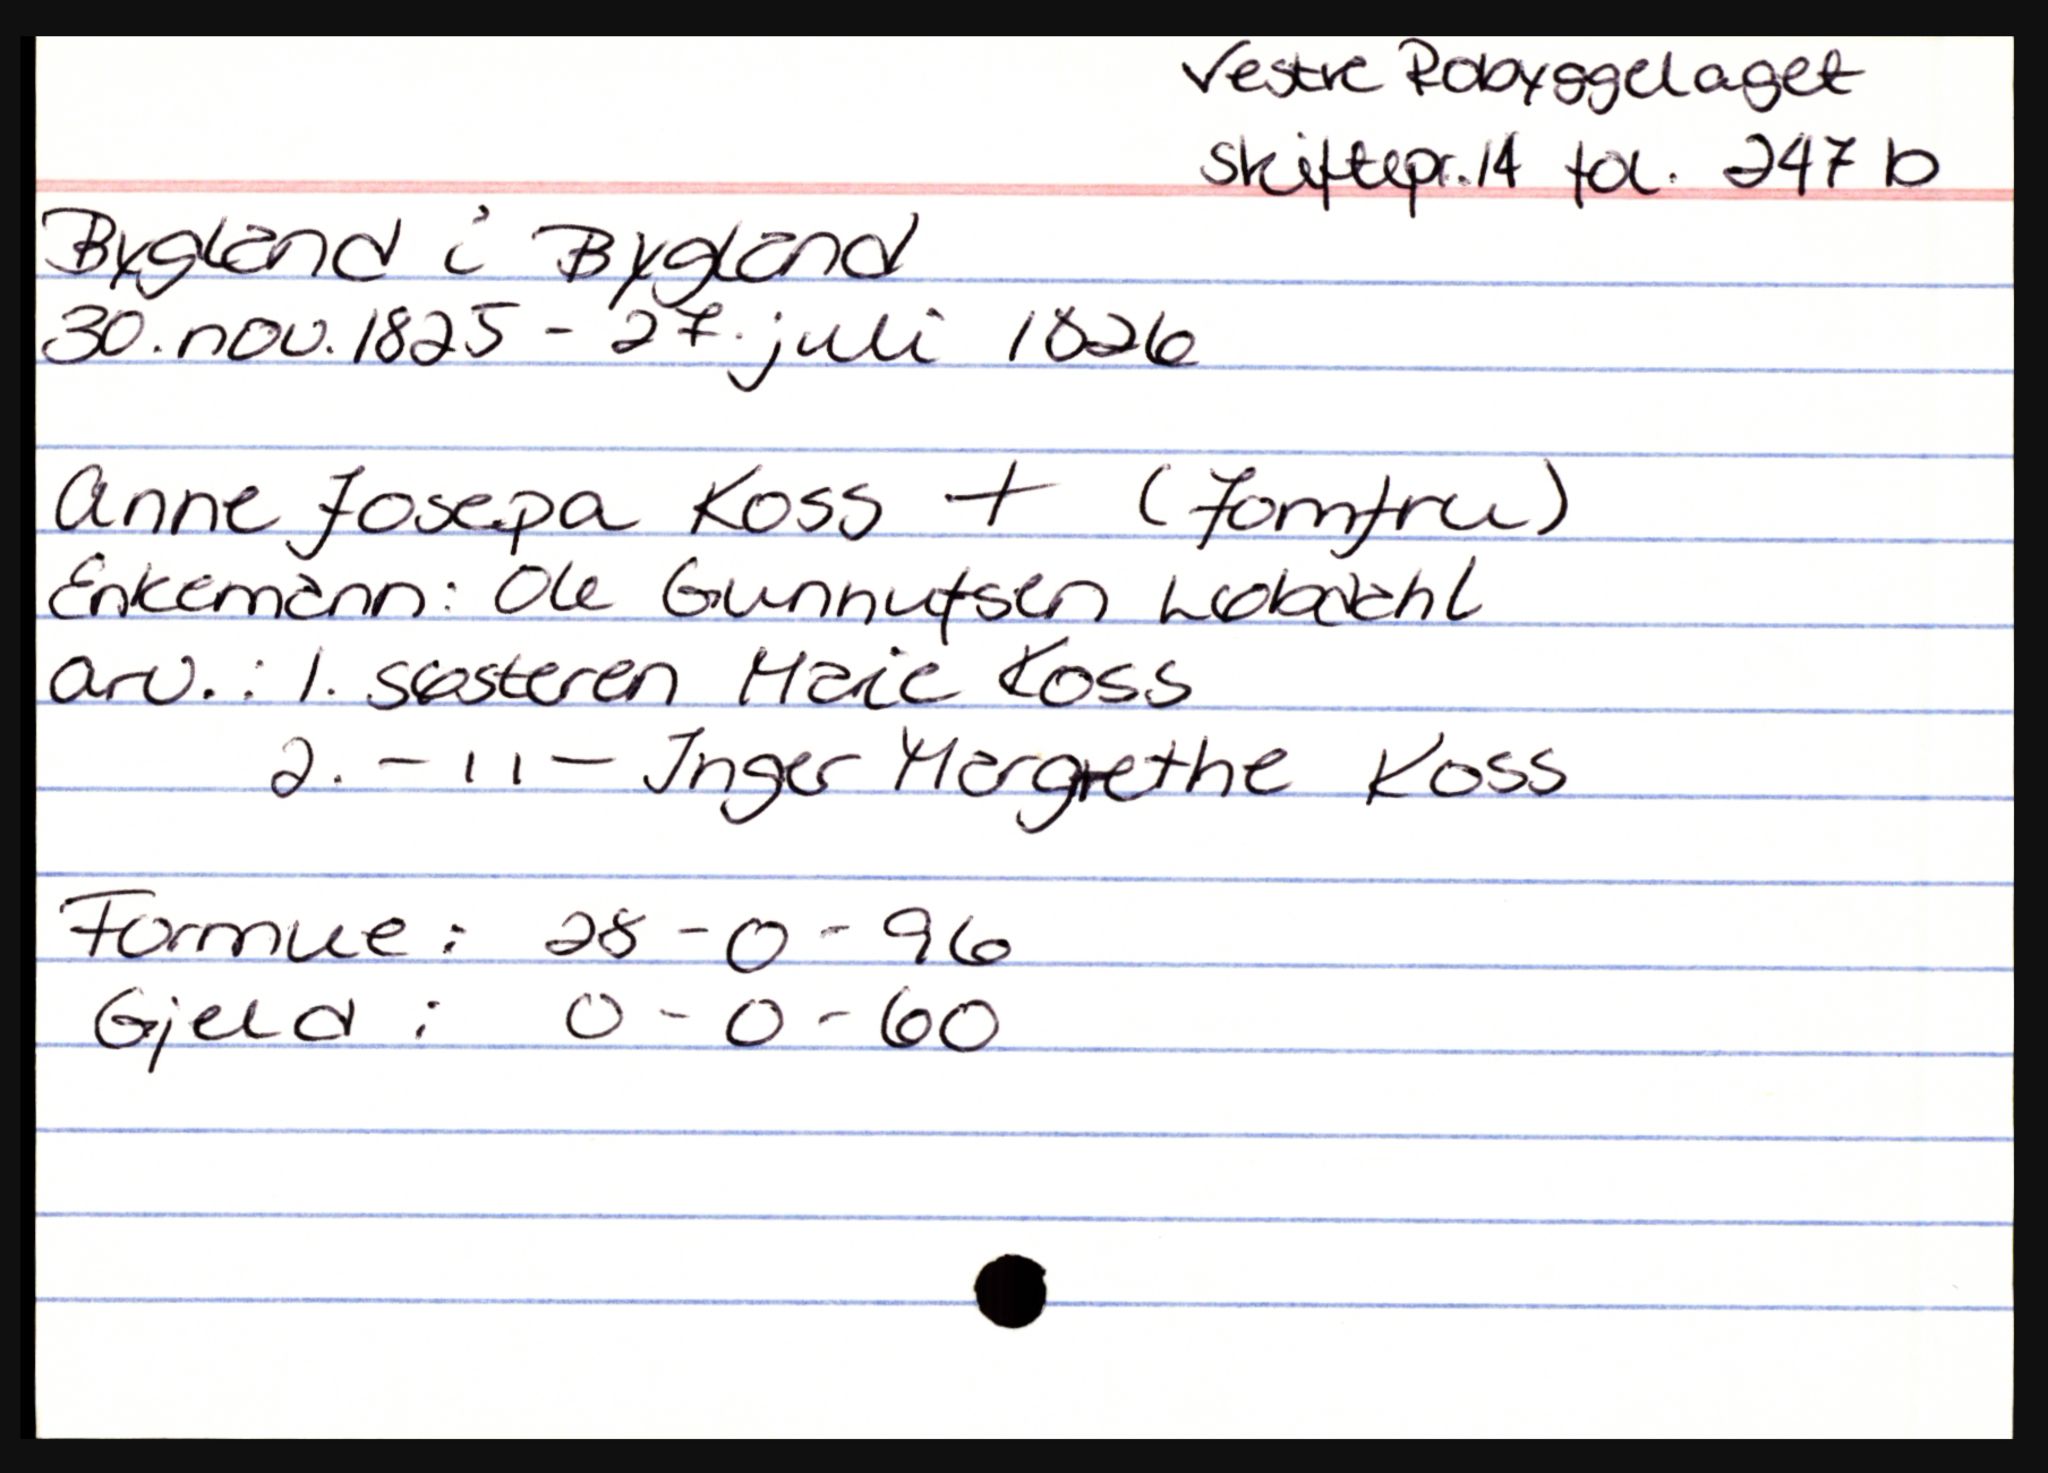 Vestre Robyggelaget
Skiftepr. 14 fol. 247 b
Bygland i Bygland
30. nov. 1825 - 27. juli 1826
Anne Josepa Koss + (Jomfru)
Enkemann: Ole Gunnufsen Løbdahl
Arv.: 1. søsteren Marie Koss
2. - 11 - Inger Margrethe Koss
Formue: 28 - 0 - 96
Gjeld: 0 - 0 - 60